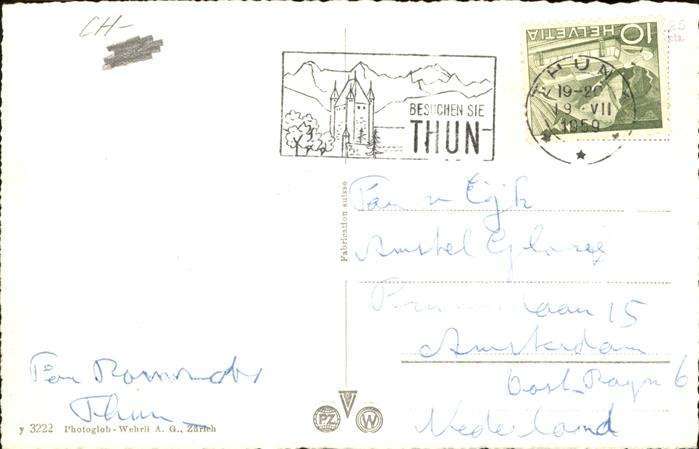 CH-
10 HELVETIA
BESUCHEN SIE
THUN
THUN
19-20
19.VII
1959
Fabrication suisse
Fam v Eijk
Amstel Glorie
laan 15
Amsterdam
Oost
Nederland
Fam
Thun
y 3222 Photoglob-Wehrli A. G., Zürich
PZ W